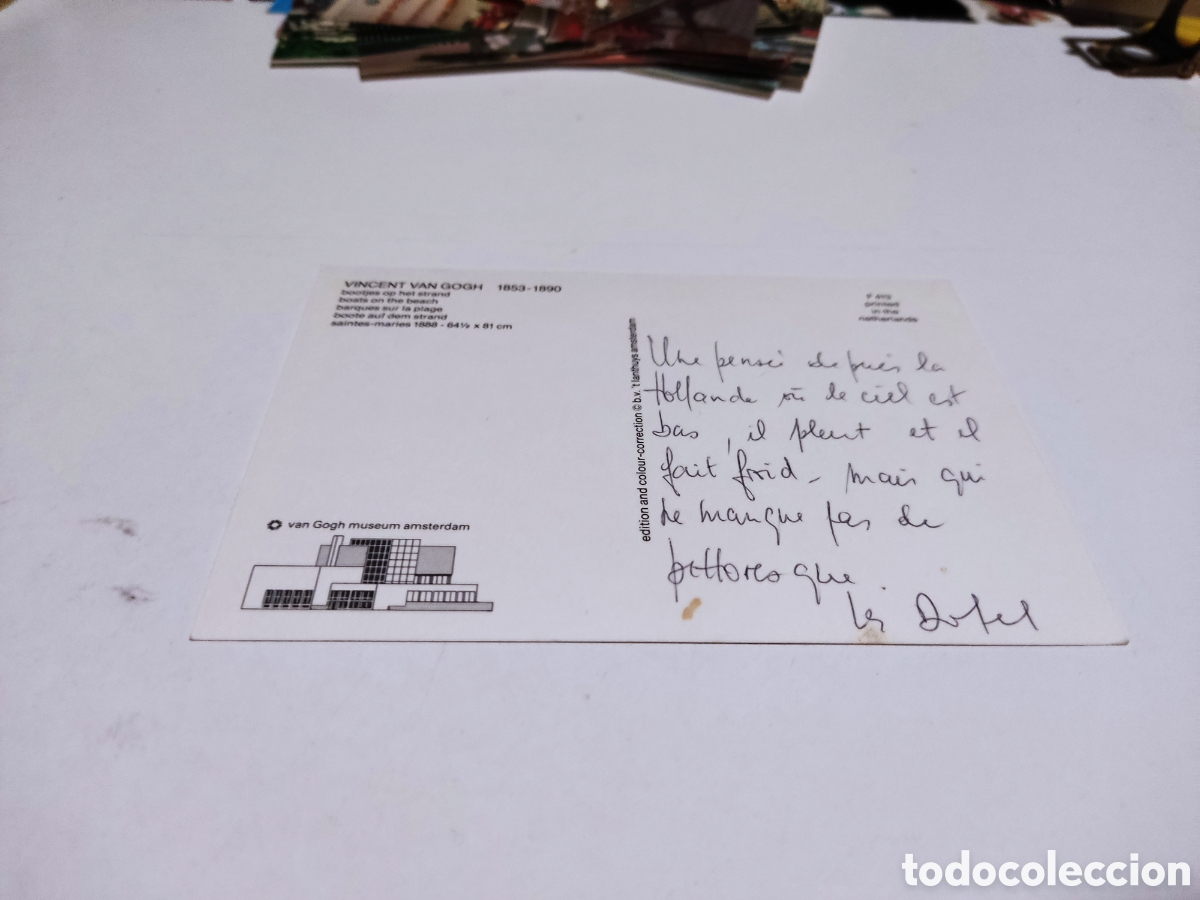 VINCENT VAN GOGH 1853-1890
bootjes op het strand
boats on the beach
barques sur la plage
boote auf dem strand
saintes-maries 1888 - 64½ x 81 cm
printed
in the
netherlands
edition and colour-correction © b.v. 't lanthuys amsterdam
Une pensée depuis la
Hollande où le ciel est
bas, il pleut et il
fait froid - mais qui
ne manque pas de
pittoresque.
les
van Gogh museum amsterdam
todocoleccion